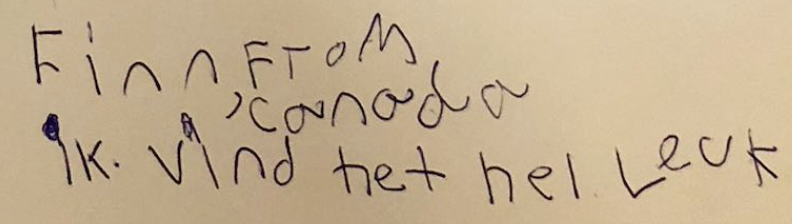 Finn, From
canada
ik. vind het hel Leuk